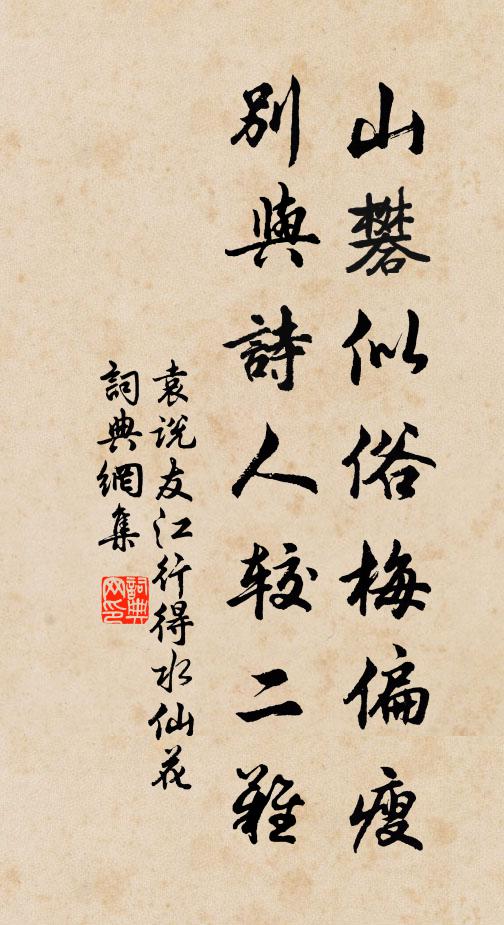 山礬似俗梅偏瘦
別與詩人較二難
袁说友江行得水仙花
詞典網集
詞典
网印